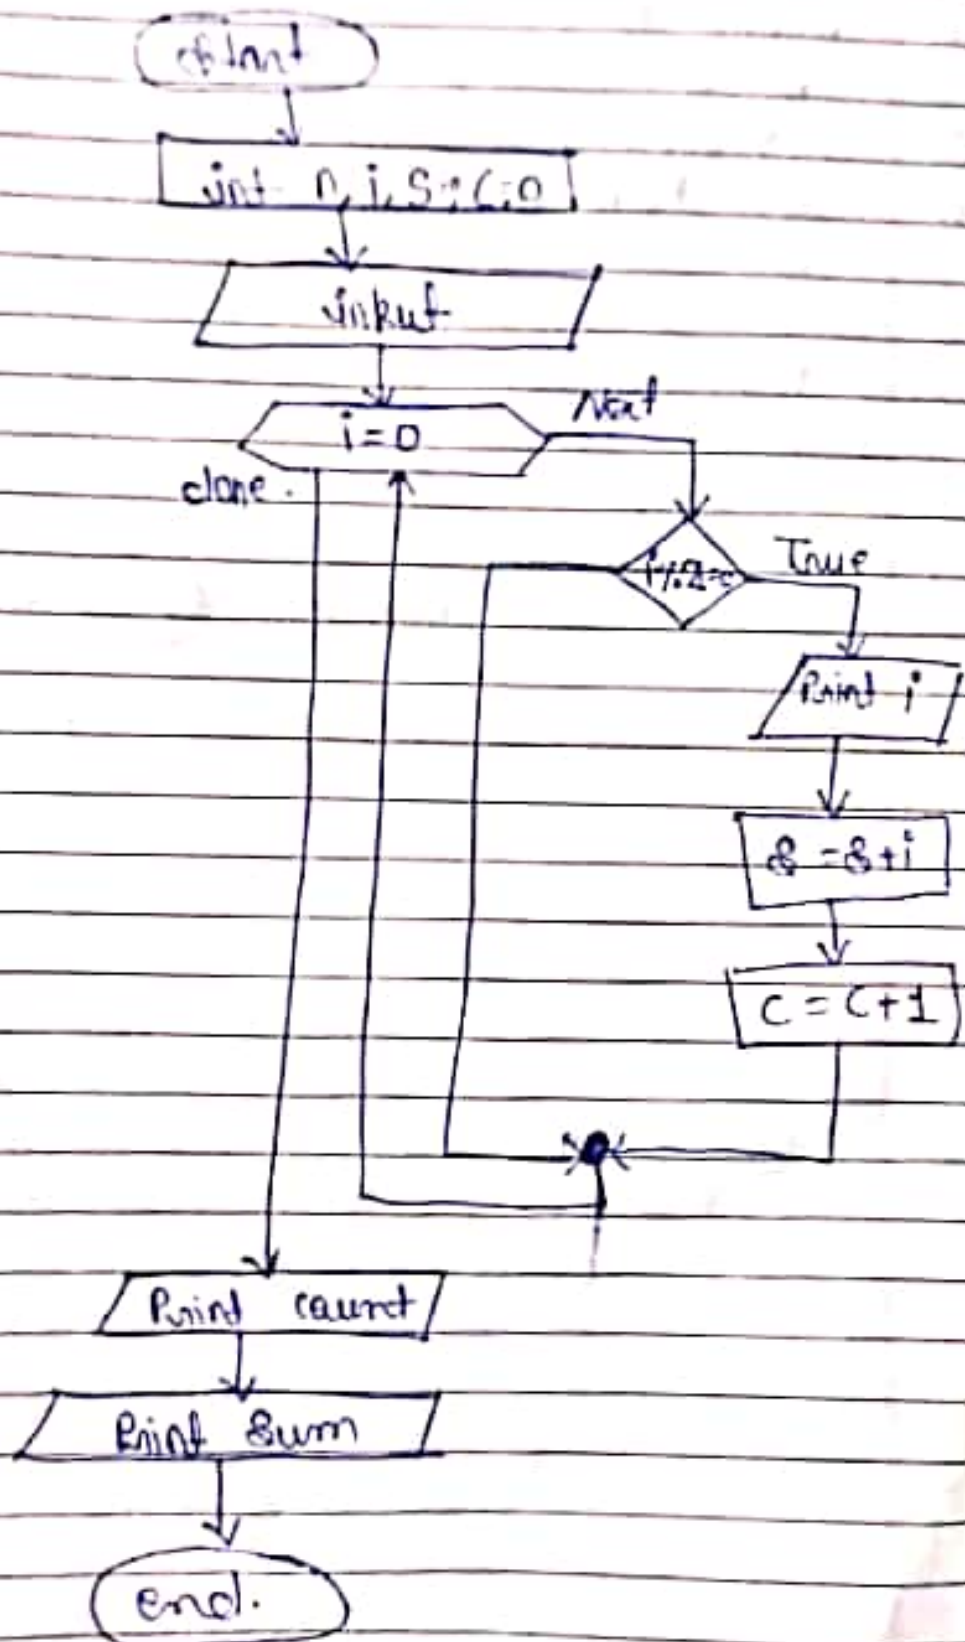 Start
int n, i, S=C=0
input
i=0
Next
done.
i%2=0
True
Print i
S=S+i
C=C+1
Print count
Print Sum
end.